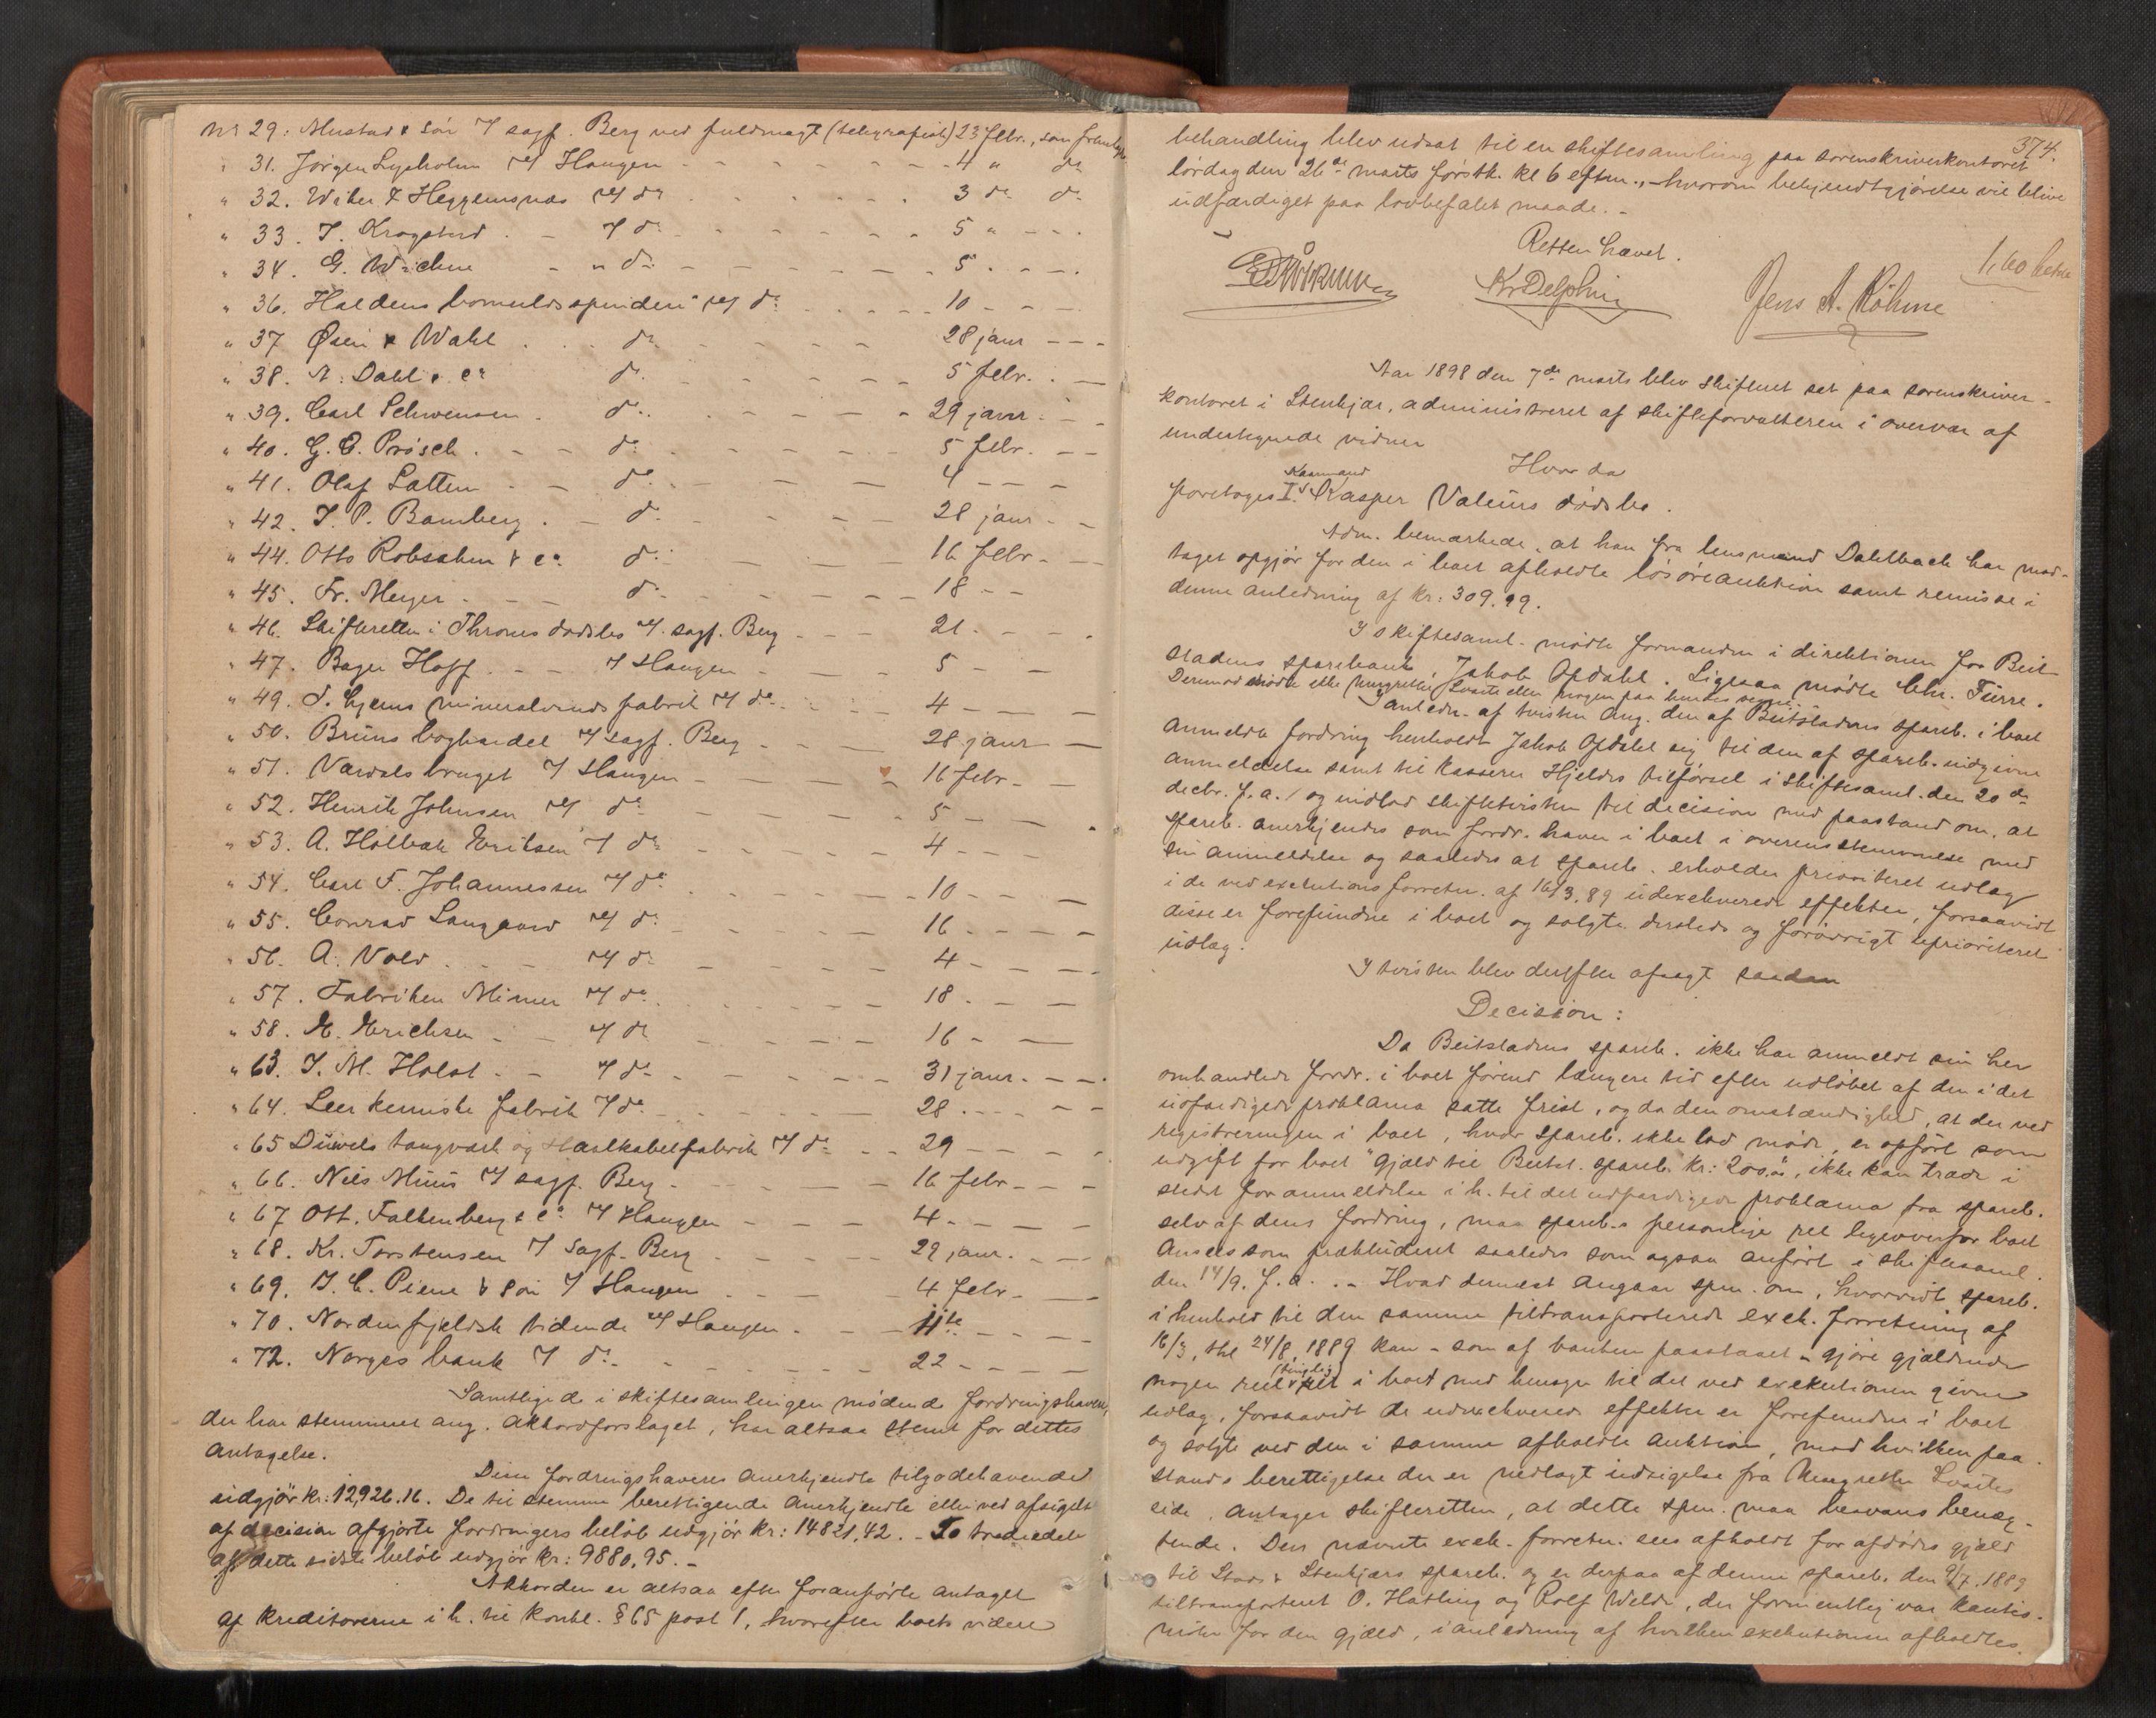 Nr 29: Mustad & søn v/ sagf. Berg ved fuldmagt (telegrafisk) 23 febr., som fremlagt
" 31. Jørgen Lysholm v/ Haugen - - - 4 " do
" 32. Wiker & Heggemsnæs v/ do 3 do do
" 33. I. Krogstad v/ do 5 "
" 34. G. Wichne - " do 5
" 36. Haldens bomuldsspinderi v/ do 10
" 37 Øien & Wahl do 28 janr
" 38. A. Dahl & co do 5 febr.
" 39. Carl Schwensen do 29 janr
" 40. G. E. Prösch do 5 febr.
" 41. Olaf Satten do 4
" 42. I. P. Bamberg do 28 janr
" 44. Otto Robsahm & co do 16 febr
" 45. Fr. Meyer do 18
" 46. Skifteretten i Thrones dødsbo v/ sagf. Berg 21
" 47. Bager Hoff v/ Haugen 5
" 49. S. Gjerns mineralvandsfabrik v/ do 4
" 50. Bruns boghandel v/ sagf. Berg 28 janr
" 51. Værdalsbruget v/ Haugen 16 febr
" 52. Henrik Johnsen v/ do 5
" 53. A. Holbæk Eriksen v/ do 4
" 54. Carl F. Johannessen v/ do 10
" 55. Conrad Langaard v/ do 16
" 56. A. Vold v/ do 4
" 57. Fabriken Mimer v/ do 18
" 58. M. Erichsen v/ do 16
" 63. I. M. Holst v/ do 31 janr
" 64. Leer kemiske fabrik v/ do 28
" 65 Duwels tougværk og Staalkabelfabrik v/ do 29
" 66. Nils Muus v/ sagf. Berg 16 febr
" 67 Ott. Falkenberg & co v/ Haugen 4
" 68. Kr. Torstensen v/ sagf. Berg 29 janr.
" 69. I. C. Piene & søn v/ Haugen 4 febr
" 70. Nordenfjeldsk tidende v/ Haugen 11te
" 72. Norges bank v/ do 22
Samtlige de i skiftesamlingen mødende fordringshavere,
der har stemmeret ang. akkordforslaget, har altsaa stemt for dettes
antagelse.
Disse fordringshaveres anerkjendte tilgodehavende
udgjør kr: 12,926.16. De til stemme berettigende anerkjendte eller ved afsigelse
af decision afgjorte fordringers beløb udgjør kr: 14821.42. - To trediedele
af dette sidste beløb udgjør kr: 9880.95. -
Akkorden er altsaa efter foranførte antaget
af kreditorerne i h. til konkl. § 65 post 1, hvorefter boets videre
374.
behandling blev udsat til en skiftesamling paa sorenskriverkontoret
lørdag den 26de marts førstk. kl 6 efterm., hvorom bekjendtgjørelse vil blive
udfærdiget paa lovbefalet maade. -
Retten hævet.
1,60 betalt
Kr Delphin
Jens A. Röhme
Aar 1898 den 7de marts blev skifteret sat paa sorenskriver-
kontoret i Stenkjær, administreret af skifteforvalteren i overvær af
undertegnede vidner
Hvor da
Kaarmand
foretoges I. Kasper Valeurs dødsbo.
Adm. bemærkede, at han fra lensmand Dahlback har mod-
taget opgjør for den i boet afholdte løsøreauktion samt remisse i
denne anledning af kr: 309.99.
I skiftesaml. mødte formanden i direktionen for Beit-
stadens sparebank, Jakob Opdahl. Ligesaa mødte Chr. Fürre.
Derimod mødte ikke Margrethe Svarte eller nogen paa hendes vegne.
I anledn. af tvisten ang. den af Beitstadens spareb. i boet
anmeldte fordring henholdt Jakob Opdahl sig til den af spareb. indgivne
anmeldelse samt til kasserer Hjeldes tilførsel i skiftesaml. den 20de
decbr. f. a. og indlod skiftetvisten til decision med paastand om, at
spareb. anerkjendes som fordr. haver i boet i overensstemmelse med
sin anmeldelse og saaledes at spareb. erholder prioriteret udlag
i de ved exekutionsforretn. af 16/3.89 udexekverede effekter, forsaavidt
disse er forefundne i boet og solgte dersteds og forøvrigt uprioriteret
udlæg.
I tvisten blev derefter afsagt saadan
Decision:
Da Beitstadens spareb. ikke har anmeldt sin her
omhandlede fordr. i boet førend længere tid efter udløbet af den i det
udfærdigede proklama satte frist, og da den omstændighed, at der ved
registreringen i boet, hvor spareb. ikke lod møde, er opført som
udgift for boet "gjæld til Beitst. spareb. kr: 200.00", ikke kan træde i
stedet for anmeldelse i h. til det udfærdigede proklama fra spareb.
selv af dens fordring, maa spareb.s personlige ret ligeoverfor boet
ansees som prækluderet saaledes som ogsaa anført i skiftesaml.
den 14/9. f. a. - Hvad dernæst angaar spm. om, hvorvidt spareb.
i henhold til den samme tiltransporterede exek. forretning af
16/3, thl 24/8, 1889 kan - som af banken paastaaet - gjøre gjældende
(tinglig)
nogen reel ret i boet med hensyn til det ved exekutionen givne
udlæg, forsaavidt de udexekverede effekter er forefundne i boet
og solgte ved den i samme afholdte auktion, mod hvilken paa-
stands berettigelse der er nedlagt indsigelse fra Margrethe Svartes
side, antager skifteretten, at dette spm. maa besvares benæg-
tende. Den nævnte exek. forretn. sees afholdt for afdødes gjæld
til Stods & Stenkjærs spareb. og er derpaa af denne spareb. den 9/7. 1889
tiltransporteret O. Hatling og Rolf Welde, der formentlig var kautio-
nister for den gjæld, i anledning af hvilken exekutionen afholdtes.